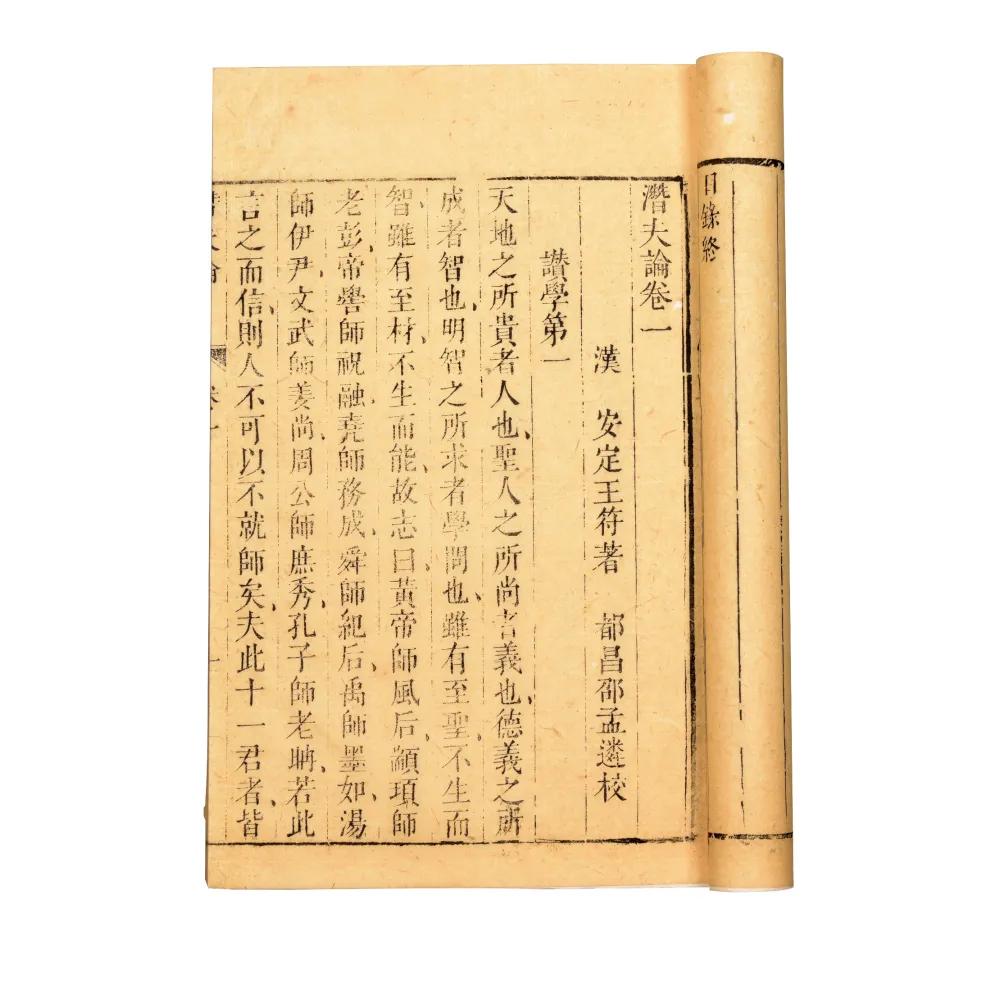 目錄終
潛夫論卷一
漢 安定王符著 都昌邵孟遴校
讚學第一
天地之所貴者人也、聖人之所尚者義也、德義之所
成者智也、明智之所求者學問也、雖有至聖、不生而
智、雖有至材、不生而能、故志曰、黃帝師風后、顓頊師
老彭、帝嚳師祝融、堯師務成、舜師紀后、禹師墨如、湯
師伊尹、文武師姜尚、周公師庶秀、孔子師老聃、若此
言之而信、則人不可以不就師矣、夫此十一君者、皆